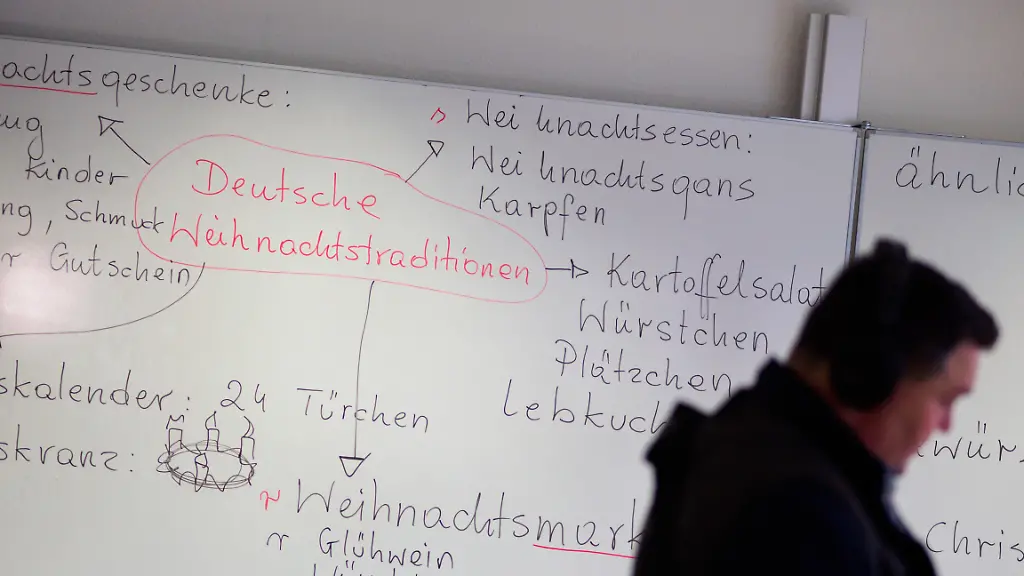 achtsgeschenke:
ug
Kinder
ng, Schmuck
r Gutschein
Deutsche
Weihnachtstraditionen
Weihnachtsessen:
Weihnachtsgans
Karpfen
Kartoffelsalat
Würstchen
Plätzchen
Lebkuch
skalender: 24 Türchen
skranz:
Weihnachtsmark
Glühwein
ähnlic
würs
Chris